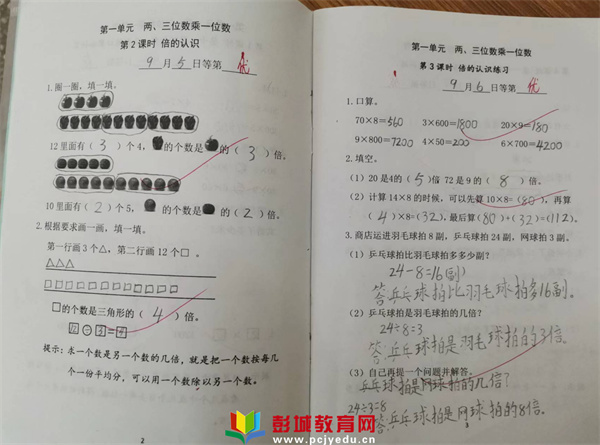 第一单元 两、三位数乘一位数
第2课时 倍的认识
9月5日等第 优
1.圈一圈，填一填。
12里面有（3）个4，的个数是的（3）倍。
10里面有（2）个5，的个数是的（2）倍。
2.根据要求画一画，填一填。
第一行画3个△，第二行画12个□。
△△△
□□□□□□□□□□□□
□的个数是三角形的（4）倍。
12÷3=4
提示：求一个数是另一个数的几倍，就是把一个数按每几
个一份平均分，可以用一个数除以另一个数。
2
第一单元 两、三位数乘一位数
第3课时 倍的认识练习
9月6日等第 优
1.口算。
70×8=560 3×600=1800 20×9=180
9×800=7200 4×50=200 6×700=4200
2.填空。
（1）20是4的（5）倍 72是9的（8）倍。
（2）计算14×8的时候，可以先算10×8=（80），再算
（4）×8=（32），最后算（80）+（32）=（112）。
3.商店运进羽毛球拍8副，乒乓球拍24副，网球拍3副。
（1）乒乓球拍比羽毛球拍多多少副？
24-8=16副)
答:乒乓球拍比羽毛球拍多16副。
（2）乒乓球拍是羽毛球拍的几倍？
24÷8=3
答:乒乓球拍是羽毛球拍的3倍。
（3）自己再提一个问题并解答。
乒乓球拍是网球拍的几倍？
24÷3=8
答:乒乓球拍是网球拍的8倍。
彭城教育网
www.pcjyedu.cn